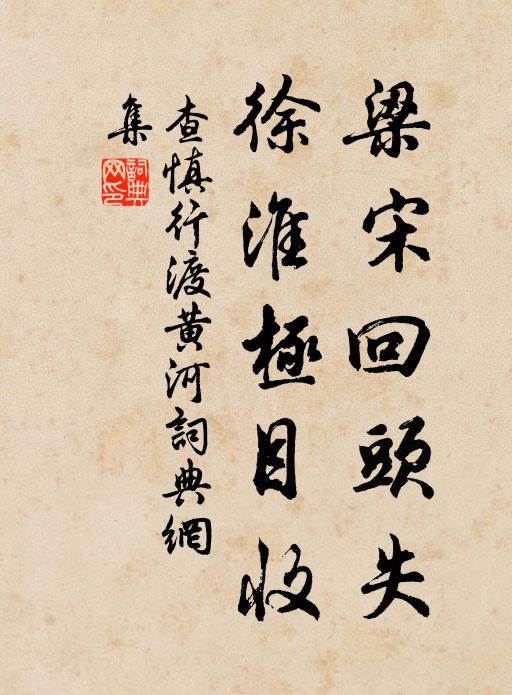 梁宋回頭失
徐淮極目收
查慎行渡黄河詞典網
集
詞典
网印